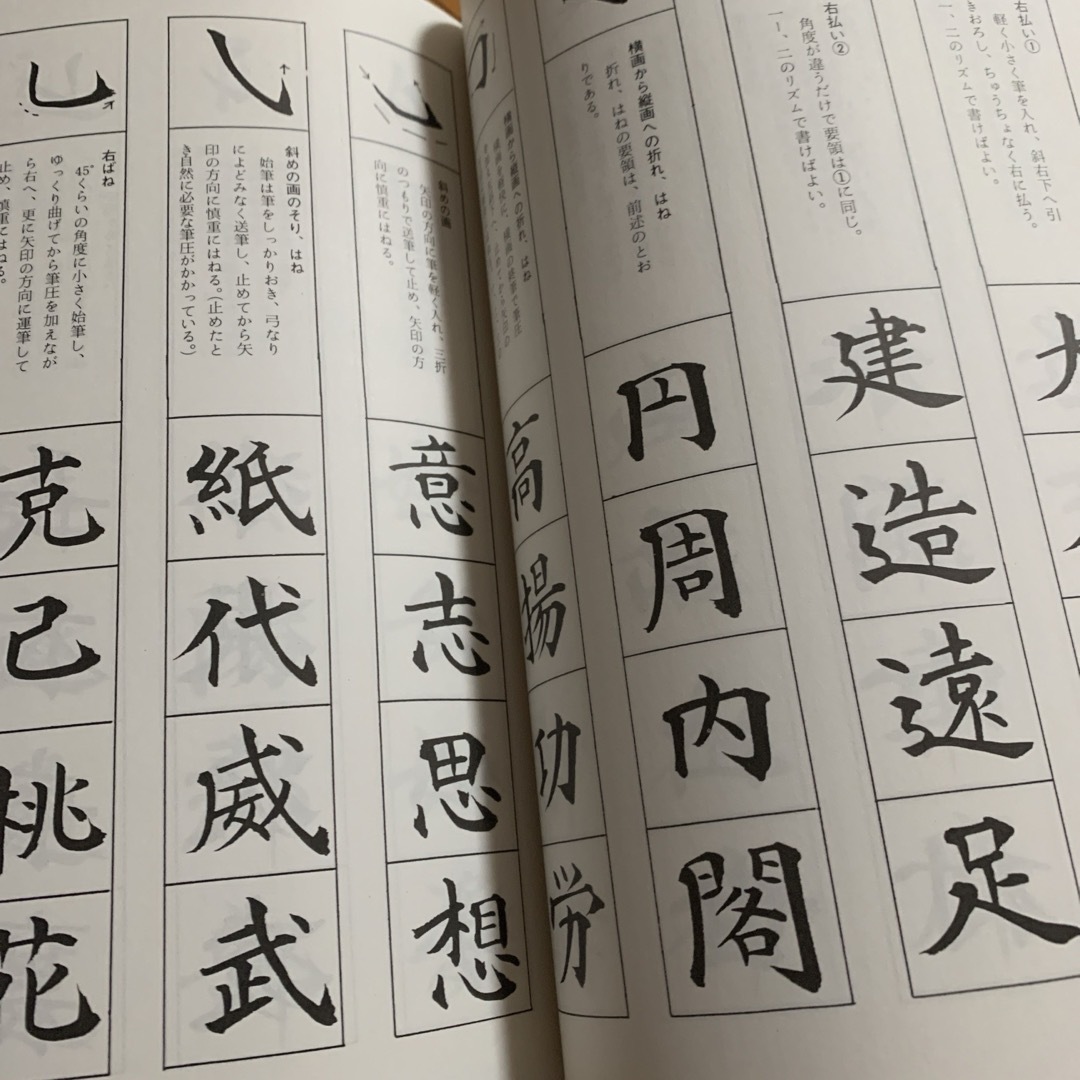 右払い①
軽く小さく筆を入れ、斜右下へ引
きおろし、ちゅうちょなく右に払う。
一、二のリズムで書けばよい。
右払い②
角度が違うだけで要領は①に同じ。
一、二のリズムで書けばよい。
建
造
遠
足
横画から縦画への折れ、はね
折れ、はねの要領は、前述のとお
りである。
円
周
内
閣
横画から縦画への折れ、はね
高
揚
功
労
斜めの画
矢印の方向に筆を軽く入れ、三折
のつもりで送筆して止め、矢印の方
向に慎重にはねる。
意
志
思
想
斜めの画のそり、はね
始筆は筆をしっかりおき、弓なり
によどみなく送筆し、止めてから矢
印の方向に慎重にはねる。(止めたと
き自然に必要な筆圧がかかっている。)
紙
代
威
武
右ばね
45°くらいの角度に小さく始筆し、
ゆっくり曲げてから筆圧を加えなが
ら右へ、更に矢印の方向に運筆して
止め、慎重にはねる。
克
己
桃
花